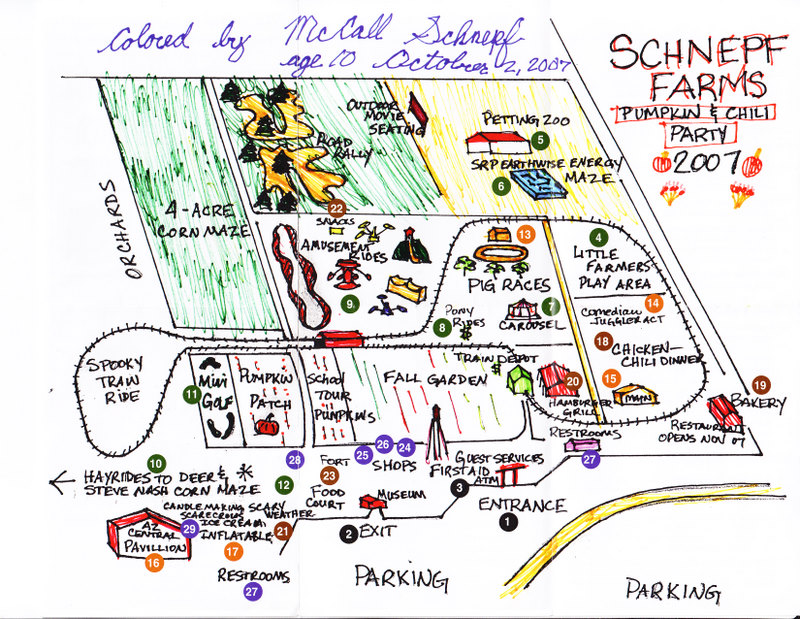 Colored by McCall Schnepf
age 10 October 2, 2007
SCHNEPF
FARMS
PUMPKIN & CHILI
PARTY
2007
OUTDOOR
MOVIE
SEATING
PETTING ZOO
5
ROAD
RALLY
SRP EARTHWISE ENERGY
MAZE
6
ORCHARDS
4-ACRE
CORN MAZE
22
SNACKS
AMUSEMENT
RIDES
9
13
PIG RACES
4
LITTLE
FARMERS
PLAY AREA
PONY
RIDES
8
7
CAROUSEL
14
COMEDIAN
JUGGLER ACT
18
CHICKEN-
CHILI DINNER
15
MAIN
SPOOKY
TRAIN
RIDE
11
MINI
GOLF
PUMPKIN
PATCH
SCHOOL
TOUR
PUMPKINS
FALL GARDEN
TRAIN DEPOT
20
HAMBURGER
GRILL
19
BAKERY
RESTAURANT
OPENS NOV 07
RESTROOMS
27
10
HAYRIDES TO DEER & *
STEVE NASH CORN MAZE
28
12
FORT
23
FOOD
COURT
25
26
24
SHOPS
GUEST SERVICES
FIRST AID
ATM
3
MUSEUM
ENTRANCE
1
2
EXIT
CANDLE MAKING SCARY
SCARECROWS WEATHER
ICE CREAM
29
INFLATABLE
21
17
AZ
CENTRAL
PAVILLION
16
RESTROOMS
27
PARKING
PARKING